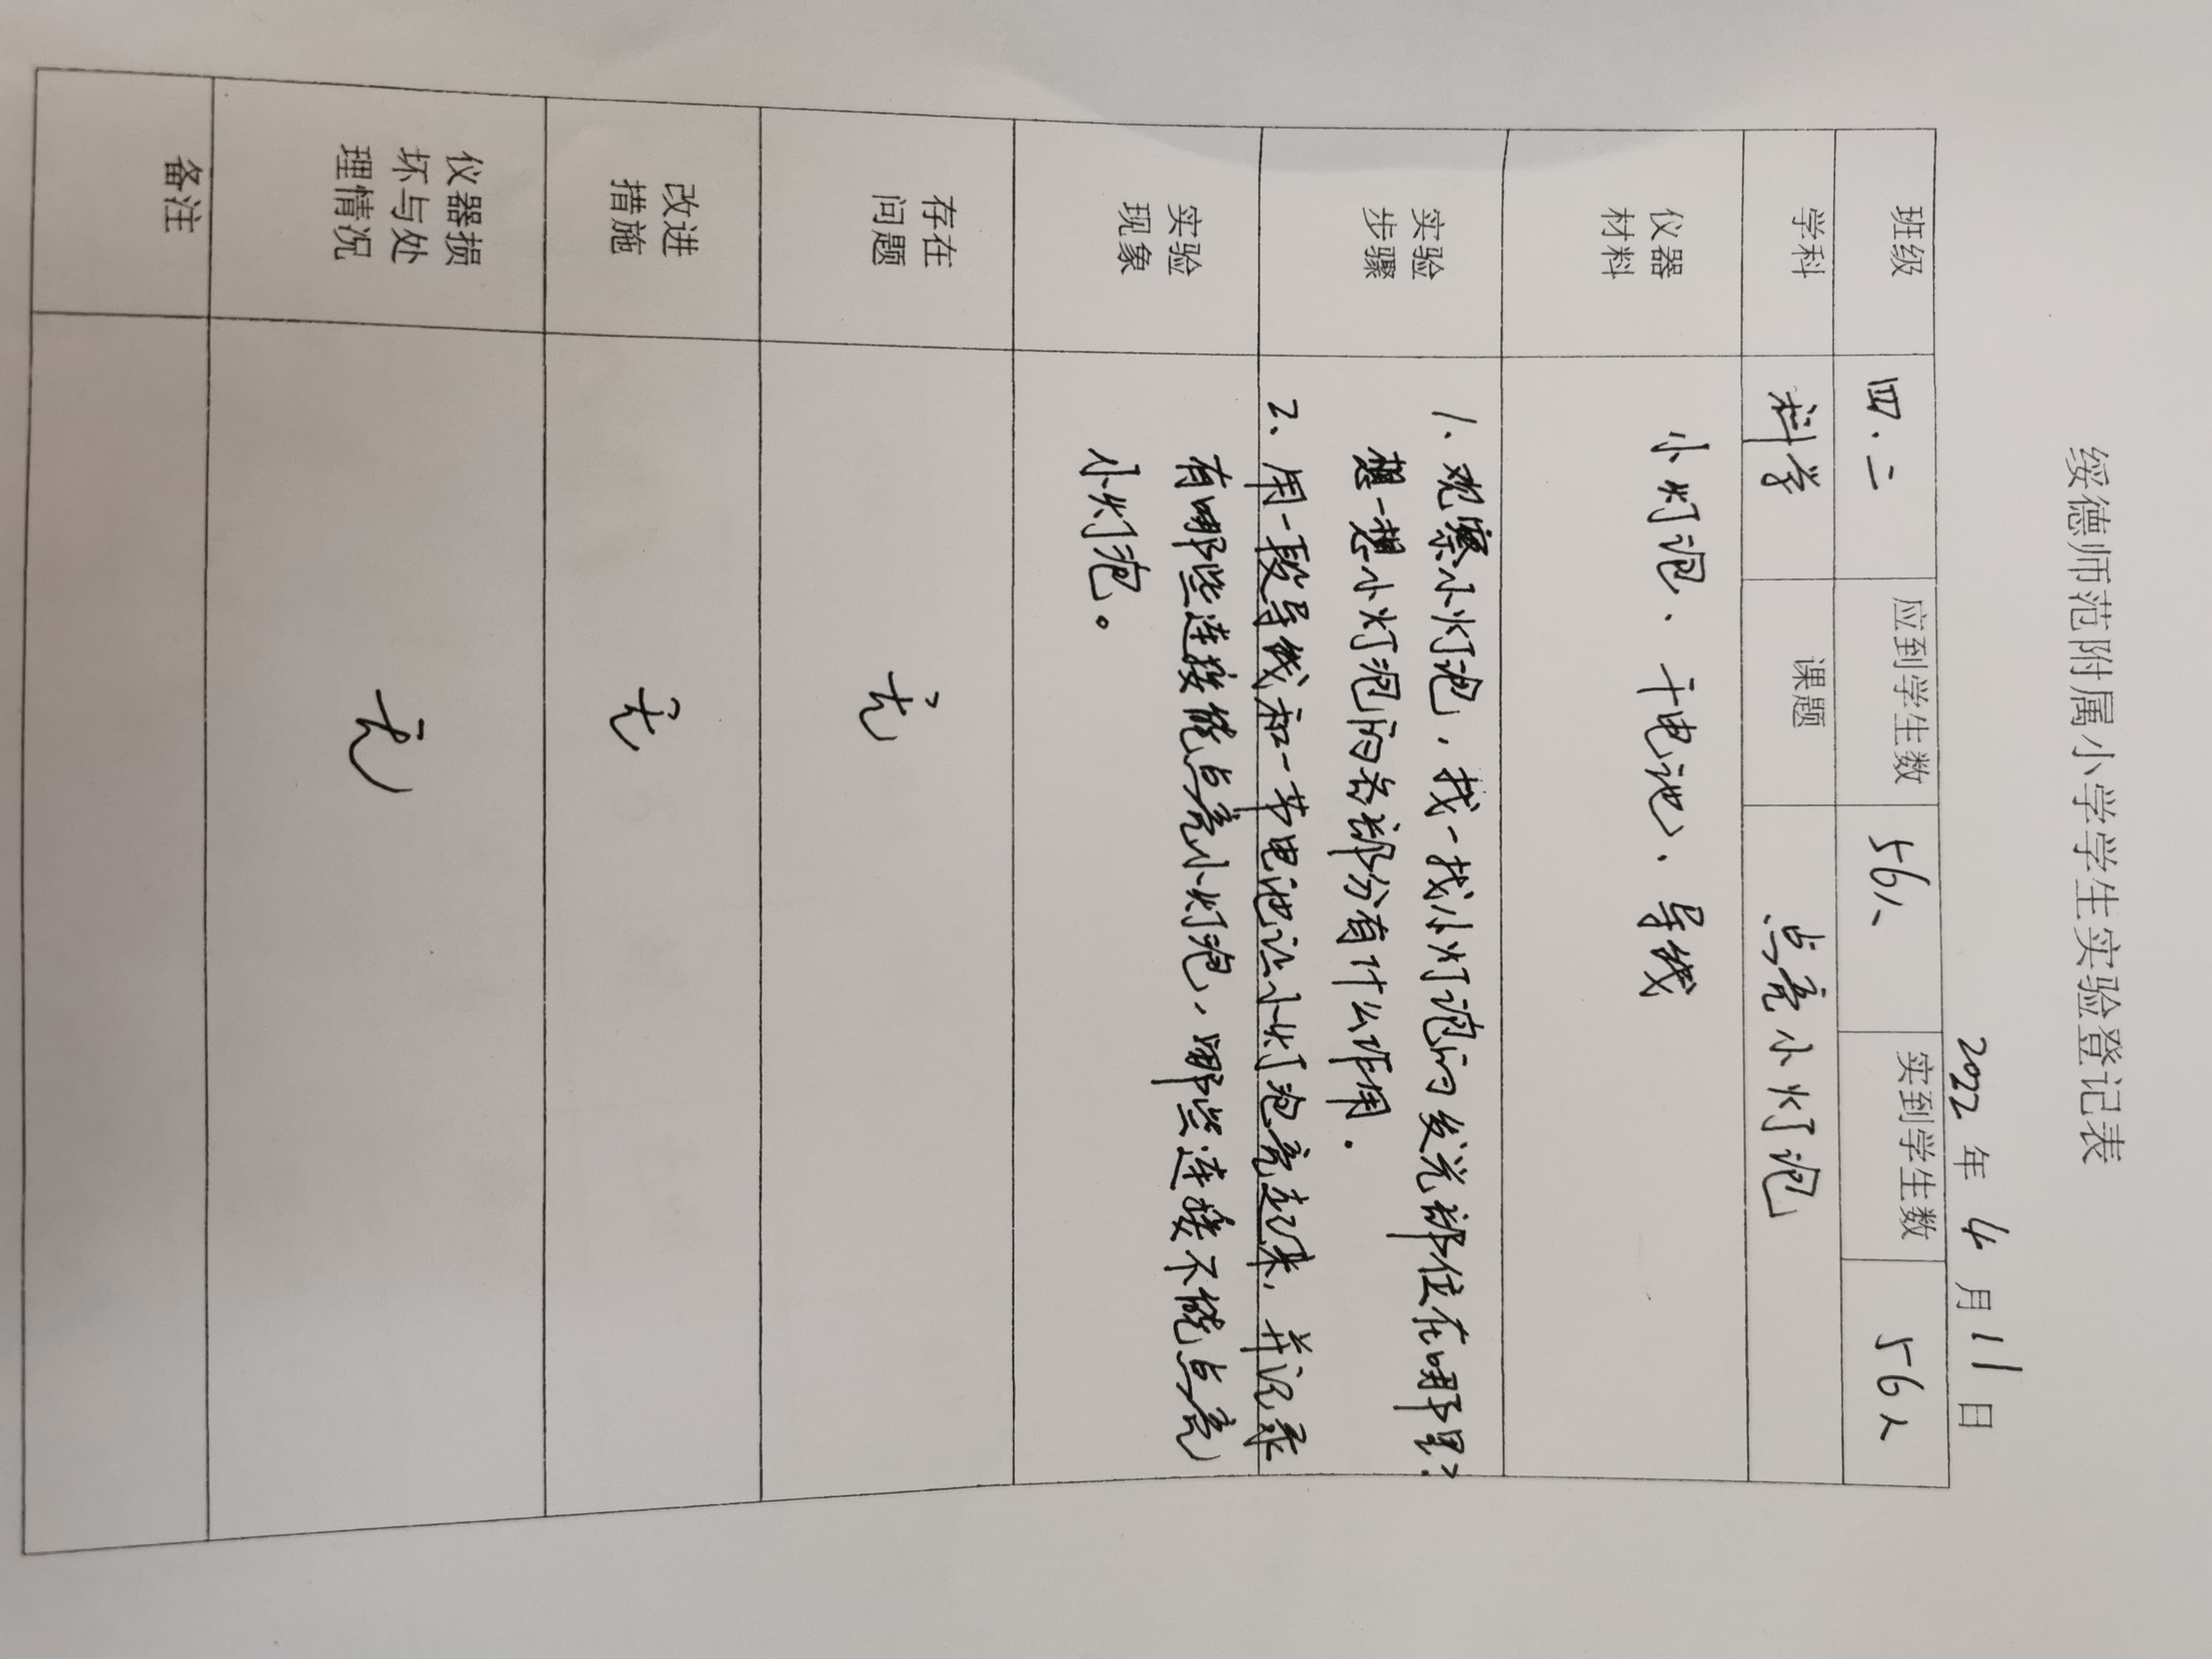 绥德师范附属小学学生实验登记表
2022年4月11日
班级 四.二 应到学生数 56人 实到学生数 56人
学科 科学 课题 点亮小灯泡
仪器
材料
小灯泡、干电池、导线
实验
步骤
1、观察小灯泡，找一找小灯泡的发光部位在哪里？
想一想小灯泡的各部分有什么作用.
2、用一段导线和一节电池让小灯泡亮起来，并记录
实验
现象
有哪些连接能点亮小灯泡，哪些连接不能点亮
小灯泡。
存在
问题
无
改进
措施
无
仪器损
坏与处
理情况
无
备注